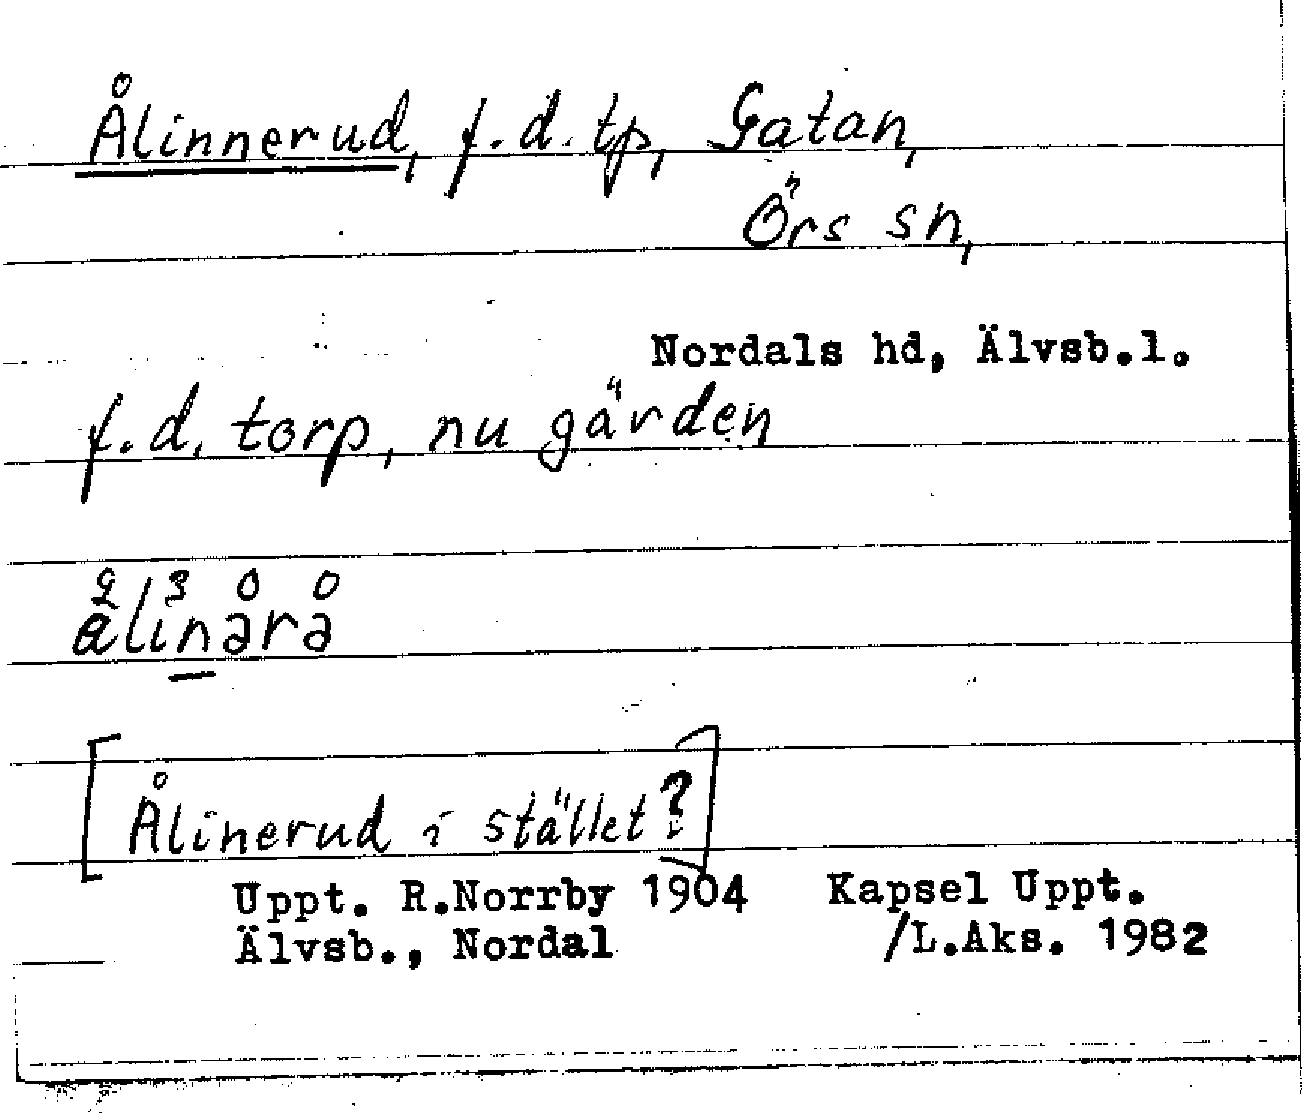 Ålinnerud, f.d. tp, Gatan,
Örs sn,
Nordals hd, Älvsb.l.
f.d. torp, nu gärden
2 3 0 0
ålinərə
[Ålinerud i stället?]
Uppt. R.Norrby 1904 Kapsel Uppt.
Älvsb., Nordal /L.Aks. 1982